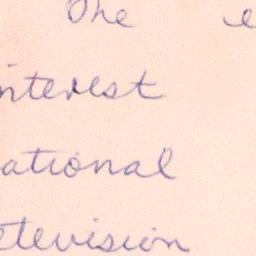 The e
nterest
ational
etevision